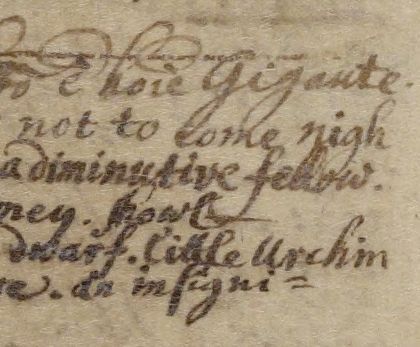 è hoïe Gigante.
not to come nigh
a diminutive fellow.
ney. Howlt
dwarf. little Urchin
re. An insigni=